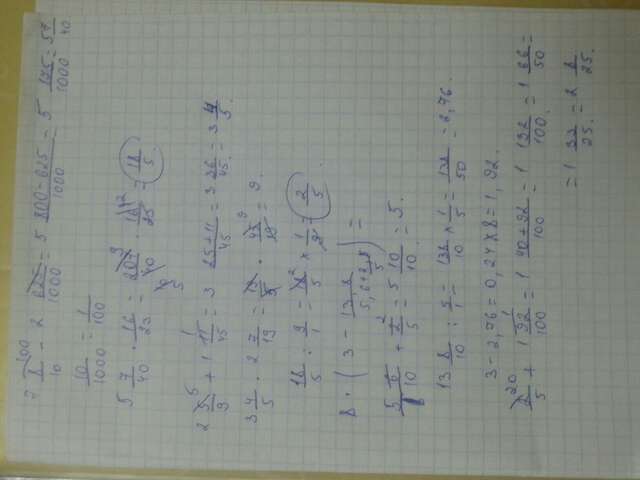 7 8/10 - 2 625/1000 = 5 800-625/1000 = 5 175/1000 = 5 7/40
10/1000 = 1/100
5 7/40 · 16/23 = 207/40 · 16/23 = 18/5.
2 5/9 + 1 11/45 = 3 25+11/45 = 3 36/45 = 3 4/5.
3 4/5 · 2 7/19 = 19/5 · 45/19 = 9.
18/5 : 9/1 = 18/5 × 1/9 = 2/5.
8 · (3 - 13,8/5,6+2 2/5) =
5 6/10 + 2/5 = 5 10/10 = 5.
13 8/10 : 5/1 = 138/10 × 1/5 = 138/50 = 2,76.
3 - 2,76 = 0,24 × 8 = 1,92.
2/5 + 1 92/100 = 1 40+92/100 = 1 132/100 = 1 66/50 =
= 1 33/25 = 2 8/25.